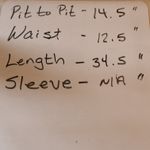 Pit to Pit - 14.5"
Waist - 12.5"
Length - 34.5"
Sleeve - N/A "